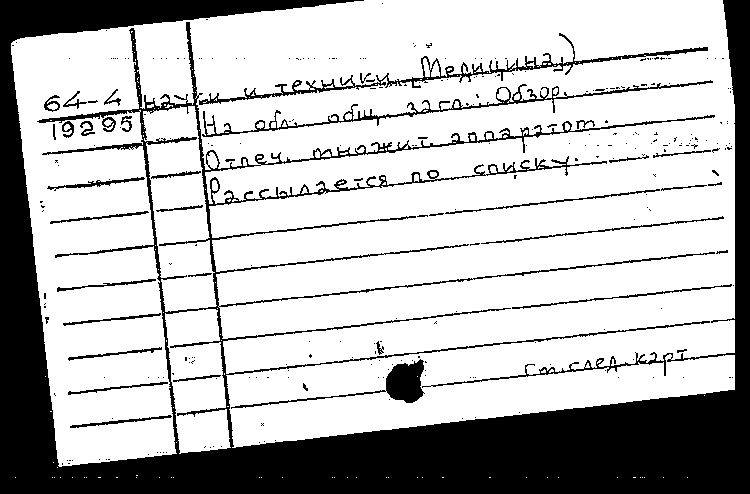 64-4 науки и техники. [Медицина])
19295 На обл. общ. загл.: Обзор.
Отпеч. множит. аппаратом.
Рассылается по списку.
См. след. карт.